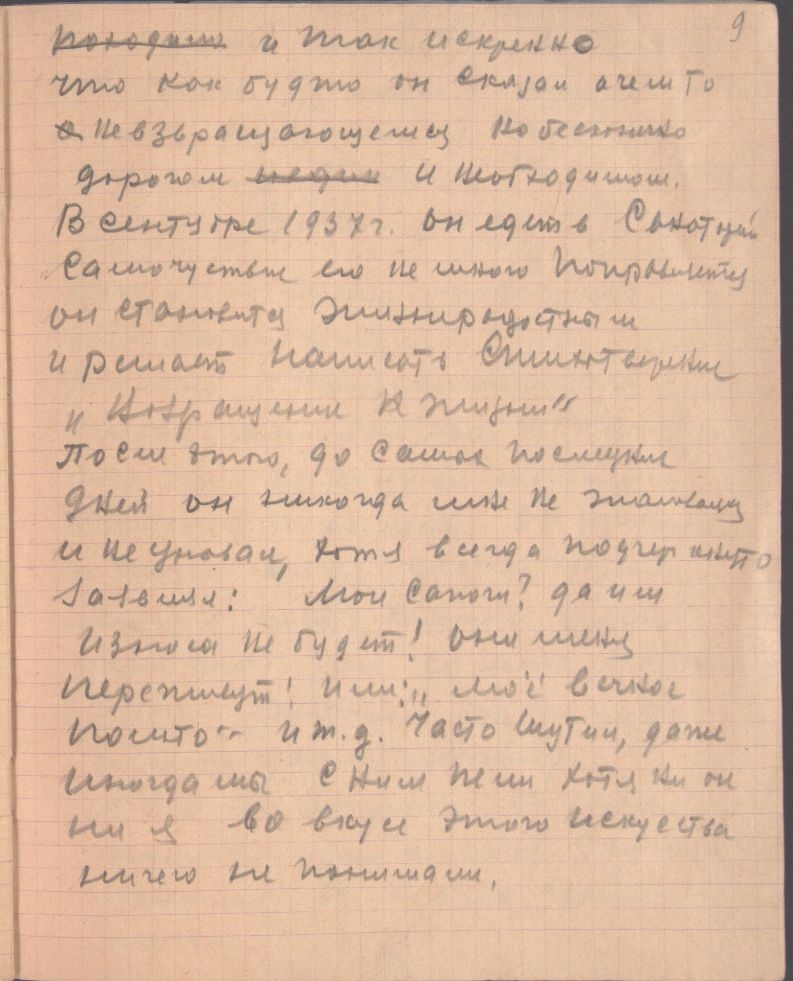 9
походило и так искренно
что как будто он сказал очем то
о невзвращающемся но бесконечно
дорогом и необходимом.
В сентябре 1937 г. он едет в Санаторий
Самочуствие его немного Поправляется
он становится жизнирадостным
и решает написать Стихотверение
„Возращение К жизни“
После этого, до самых последних
дней он никогда мне не жаловался
и не унывал, хотя всегда подчеркнуто
заявлял: Мои сапоги? да им
износа не будет! они меня
переживут! или: „моё вечное
пальто“ и т.д. Часто шутил, даже
иногда мы с ним пели хотя ни он
ни я во вкусе этого искуства
ничего не понимали,